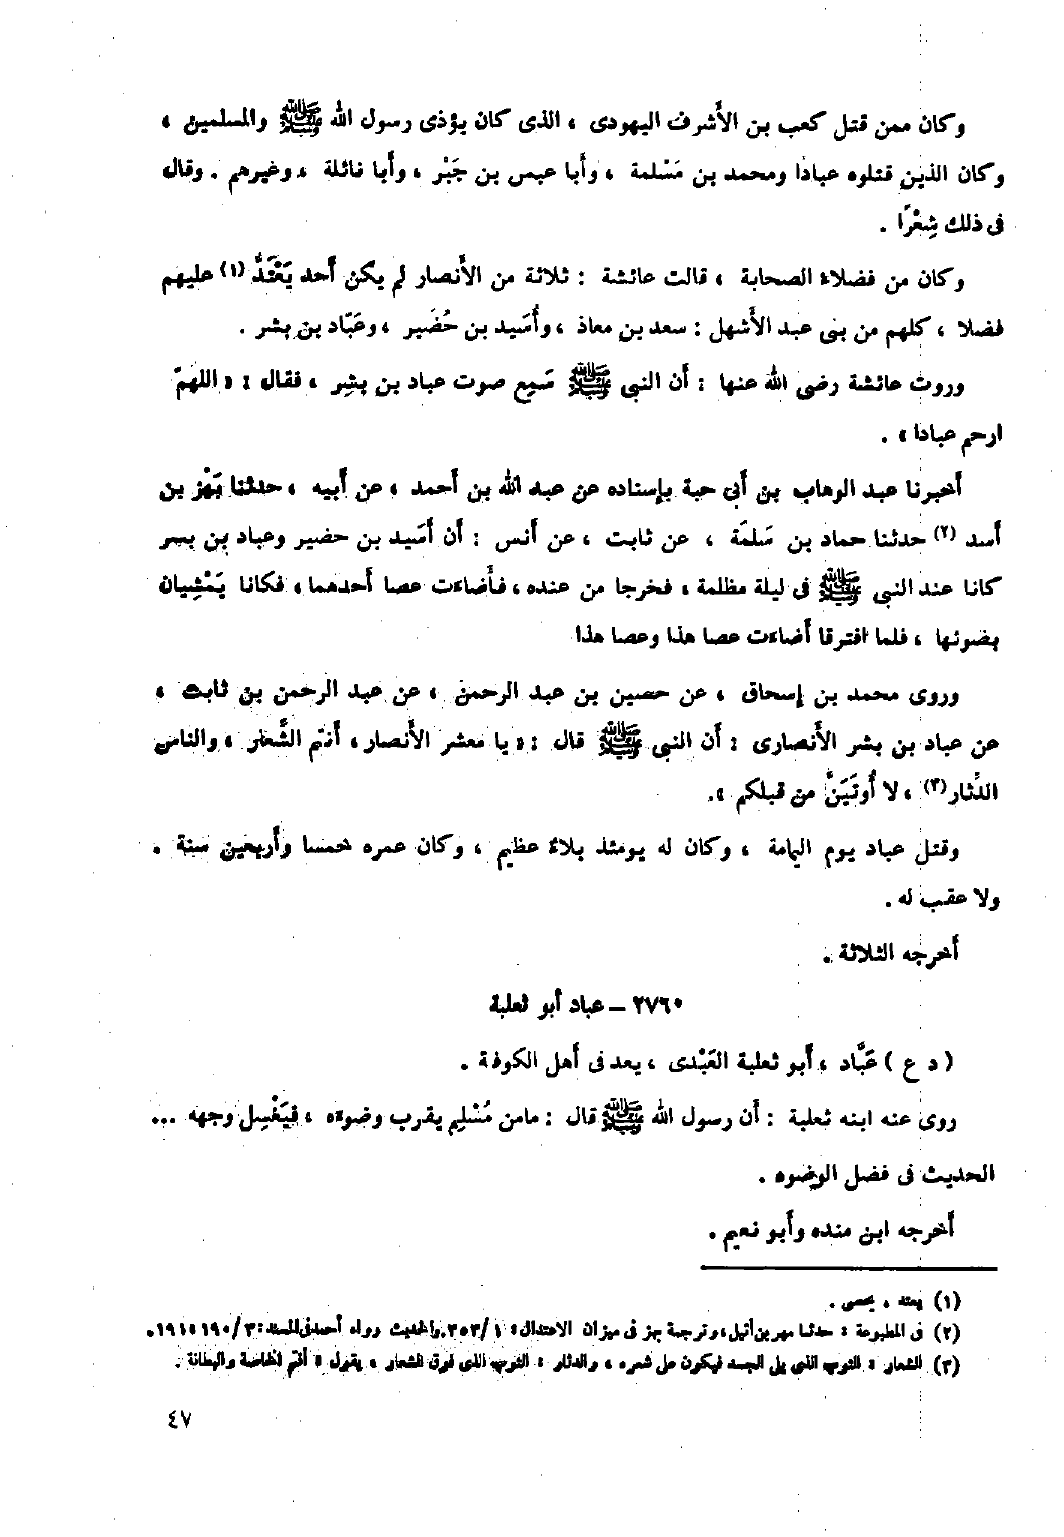 وكان ممن قتل كعب بن الأشرف اليهودى ، الذى كان يؤذى رسول الله ﷺ والمسلمين ،
وكان الذين قتلوه عبادا ومحمد بن مَسْلمة ، وأبا عبس بن جَبْر ، وأبا نائلة ، وغيرهم . وقال
فى ذلك شِعْرًا .
وكان من فضلاء الصحابة ، قالت عائشة : ثلاثة من الأنصار لم يكن أحد يَعْتَدُّ (١) عليهم
فضلا ، كلهم من بنى عبد الأشهل : سعد بن معاذ ، وأُسَيد بن حُضَير ، وعَبّاد بن بشر .
وروت عائشة رضى الله عنها : أن النبى ﷺ سَمِع صوت عباد بن بِشِر ، فقال : « اللهمّ
ارحم عبادا » .
أخبرنا عبد الوهاب بن أبى حبة بإسناده عن عبد الله بن أحمد ، عن أبيه ، حدثنا بَهْز بن
أسد (٢) حدثنا حماد بن سَلمَة ، عن ثابت ، عن أنس : أن أسَيد بن حضير وعباد بن بسر
كانا عند النبى ﷺ فى ليلة مظلمة ، فخرجا من عنده ، فأضاءت عصا أحدهما ، فكانا يَمْشِيان
بضوئها ، فلما افترقا أضاءت عصا هذا وعصا هذا
وروى محمد بن إسحاق ، عن حصين بن عبد الرحمن ، عن عبد الرحمن بن ثابت ،
عن عباد بن بشر الأنصارى : أن النبى ﷺ قال : « يا معشر الأنصار ، أنتم الشَّعار ، والناس
الدِّثار (٣) ، لا أُوتَيَنَّ من قبلكم » .
وقتل عباد يوم اليمامة ، وكان له يومئذ بلاء عظيم ، وكان عمره خمسا وأربعين سنة .
ولا عقب له .
أخرجه الثلاثة .
٢٧٦٠ – عباد أبو ثعلبة
( د ع ) عَبَّاد ، أبو ثعلبة العَبْدى ، يعد فى أهل الكوفة .
روى عنه ابنه ثعلبة : أن رسول الله ﷺ قال : مامن مُسْلِم يقرب وضوءه ، فيَغْسِل وجهه ...
الحديث فى فضل الوضوء .
أخرجه ابن منده وأبو نعيم .
(١) يعتد ، يحصى .
(٢) فى المطبوعة : حدثنا مهر بن أثيل ، وترجمة بهز فى ميزان الاعتدال : ١/ ٣٥٣. والحديث رواه أحمد فى المسند : ٣/ ١٩٠ ، ١٩١.
(٣) الشعار : الثوب الذى يلى الجسد فيكون على شعره ، والدثار : الثوب الذى فوق الشعار ، يقول : أنتم الخاصة والبطانة .
٤٧